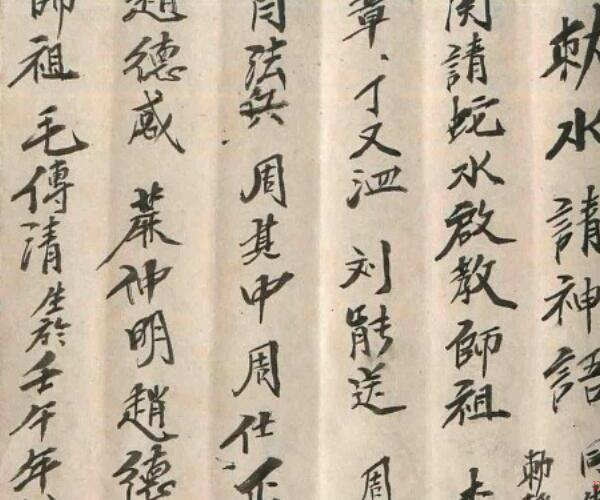 敕水請神語
請蛇水啟教師祖
章、丁文泗 刘能送 周
法兵 周其中 周仕
趙德威 蔴仲明 趙德
師祖 毛傳清 生於壬午年